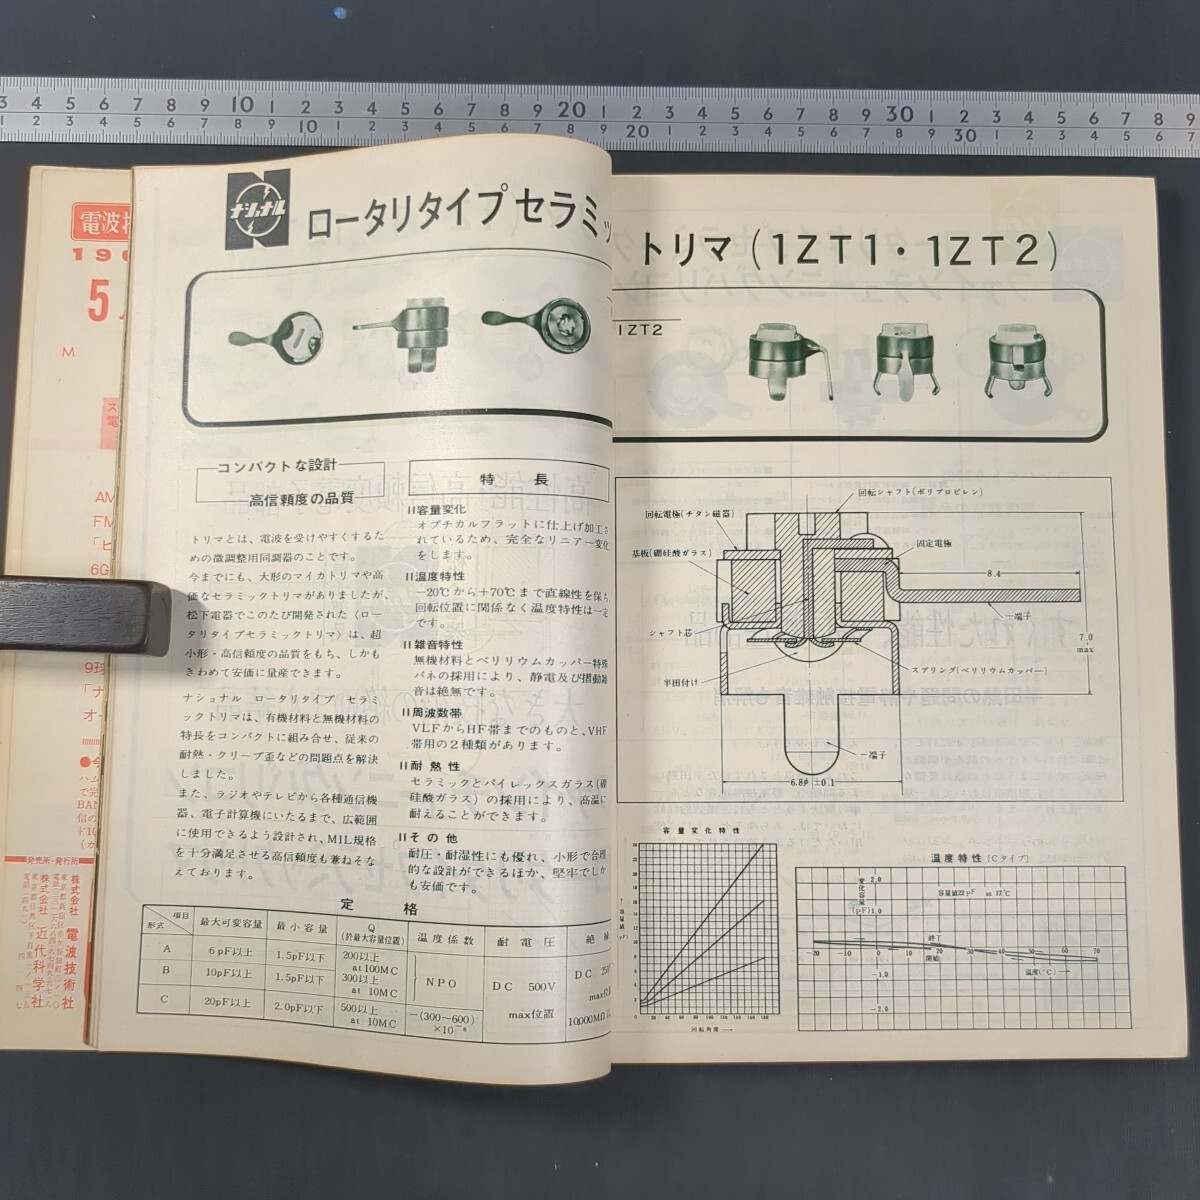 3 4 5 6 7 8 9 10 1 2 3 4 5 6 7 8 9 20 1 2 3 4 5 6 7 8 9 30 1 2 3 4 5 6 7 8 9
ナショナル
ロータリタイプセラミッ
トリマ(1ZT1・1ZT2)
1ZT2
コンパクトな設計
高信頼度の品質
トリマとは、電波を受けやすくするた
めの微調整用同調器のことです。
今までにも、大形のマイカトリマや高
価なセラミックトリマがありましたが、
松下電器でこのたび開発された〈ロー
タリタイプセラミックトリマ〉は、超
小形・高信頼度の品質をもち、しかも
きわめて安価に量産できます。
ナショナル ロータリタイプ セラミ
ックトリマは、有機材料と無機材料の
特長をコンパクトに組み合せ、従来の
耐熱・クリープ歪などの問題点を解決
しました。
また、ラジオやテレビから各種通信機
器、電子計算機にいたるまで、広範囲
に使用できるよう設計され、MIL規格
を十分満足させる高信頼度も兼ねそな
えております。
特長
容量変化
オプチカルフラットに仕上げ加工さ
れているため、完全なリニアー変化
をします。
温度特性
−20℃から+70℃まで直線性を保ち、
回転位置に関係なく温度特性は一定
です。
雑音特性
無機材料とベリリウムカッパー特殊
バネの採用により、静電及び摺動雑
音は絶無です。
周波数帯
VLFからHF帯までのものと、VHF
帯用の2種類があります。
耐熱性
セラミックとパイレックスガラス(硼
硅酸ガラス)の採用により、高温に
耐えることができます。
その他
耐圧・耐湿性にも優れ、小形で合理
的な設計ができるほか、堅牢でしか
も安価です。
定格
形式 項目 最大可変容量 最小容量 Q(於最大容量位置) 温度係数 耐電圧 絶縁
A 6pF以上 1.5pF以下 200以上 at 100MC
B 10pF以上 1.5pF以下 300以上 at 10MC
C 20pF以上 2.0pF以下 500以上 at 10MC
NPO
−(300~600)×10⁻⁶
DC 500V
max位置
DC 250
max位
10,000MΩ
回転シャフト(ポリプロピレン)
回転電極(チタン磁器)
基板(硼硅酸ガラス)
固定電極
8.4
+端子
シャフト芯
7.0 max
スプリング(ベリリウムカッパー)
半田付け
−端子
6.8φ ±0.1
容量変化特性
回転角度
0 20 40 60 80 100 120 140 160 180
温度特性(Cタイプ)
容量値22pF at 17℃
変化容量(pF)
2.0
1.0
−1.0
−2.0
終了
開始
−20 −10 10 20 30 40 50 60 70
温度(℃)
電波技
5
M
AM
FM
6G
9球
BAN
発売所・発行所
株式会社 電波技術社
株式会社 近代科学社